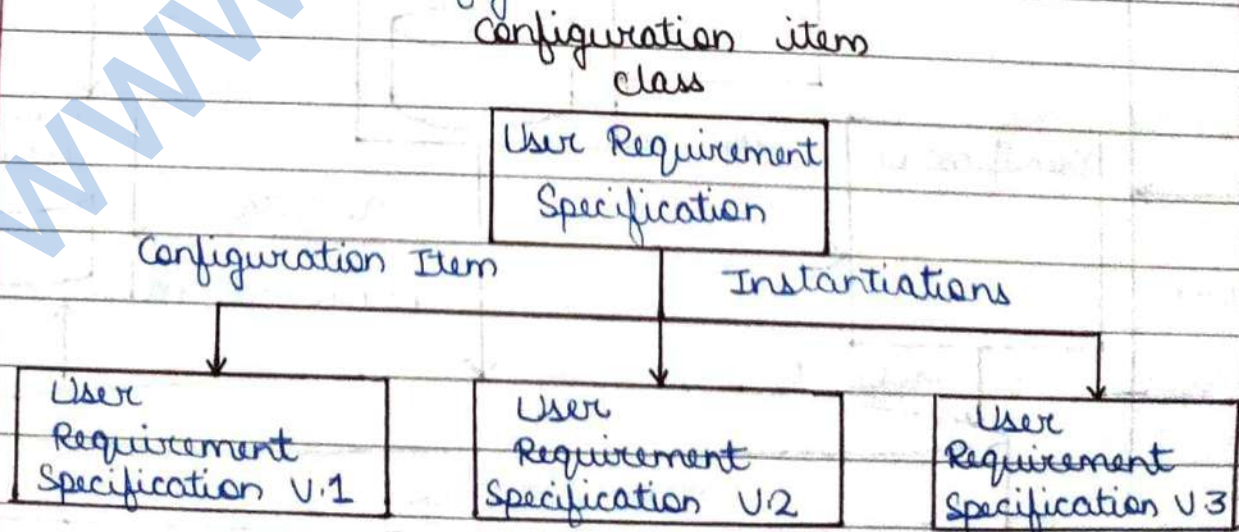 configuration item
class
User Requirement
Specification
Configuration Item
Instantiations
User
Requirement
Specification V.1
User
Requirement
Specification V.2
User
Requirement
Specification V.3